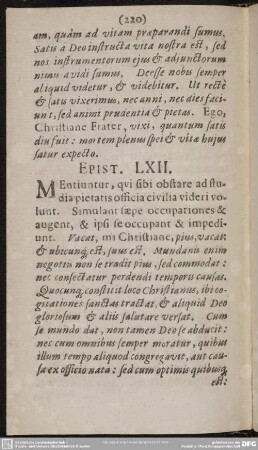 (220)
am, quàm ad vitam præparandi sumus.
Satis à Deo instructa vita nostra est, sed
nos instrumentorum ejus & adjunctorum
nimis avidi sumus. Deesse nobis semper
aliquid videtur, & videbitur. Ut rectè
& satis vixerimus, nec anni, nec dies faci-
unt, sed animi prudentia & pietas. Ego,
Christiane Frater, vixi, quantum satis
diu fuit: mortem plenus spei & vitæ hujus
satur expecto.
EPIST. LXII.
MEntiuntur, qui sibi obstare ad stu-
dia pietatis officia civilia videri vo-
lunt. Simulant sæpe occupationes &
augent, & ipsi se occupant & impedi-
unt. Vacat, mi Christiane, pius, vacat:
& ubicunq; est, suus est. Mundanis enim
negotiis non se tradit pius, sed commodat:
nec consectatur perdendi temporis causas.
Quocunq; constitit loco Christianus, ibi co-
gitationes sanctas tractat, & aliquid Deo
gloriosum & aliis salutare versat. Cum
se mundo dat, non tamen Deo se abducit:
nec cum omnibus semper moratur, quibus
illum tempo aliquod congregavit, aut cau-
sa ex officio nata: sed cum optimis quibusq;
est: